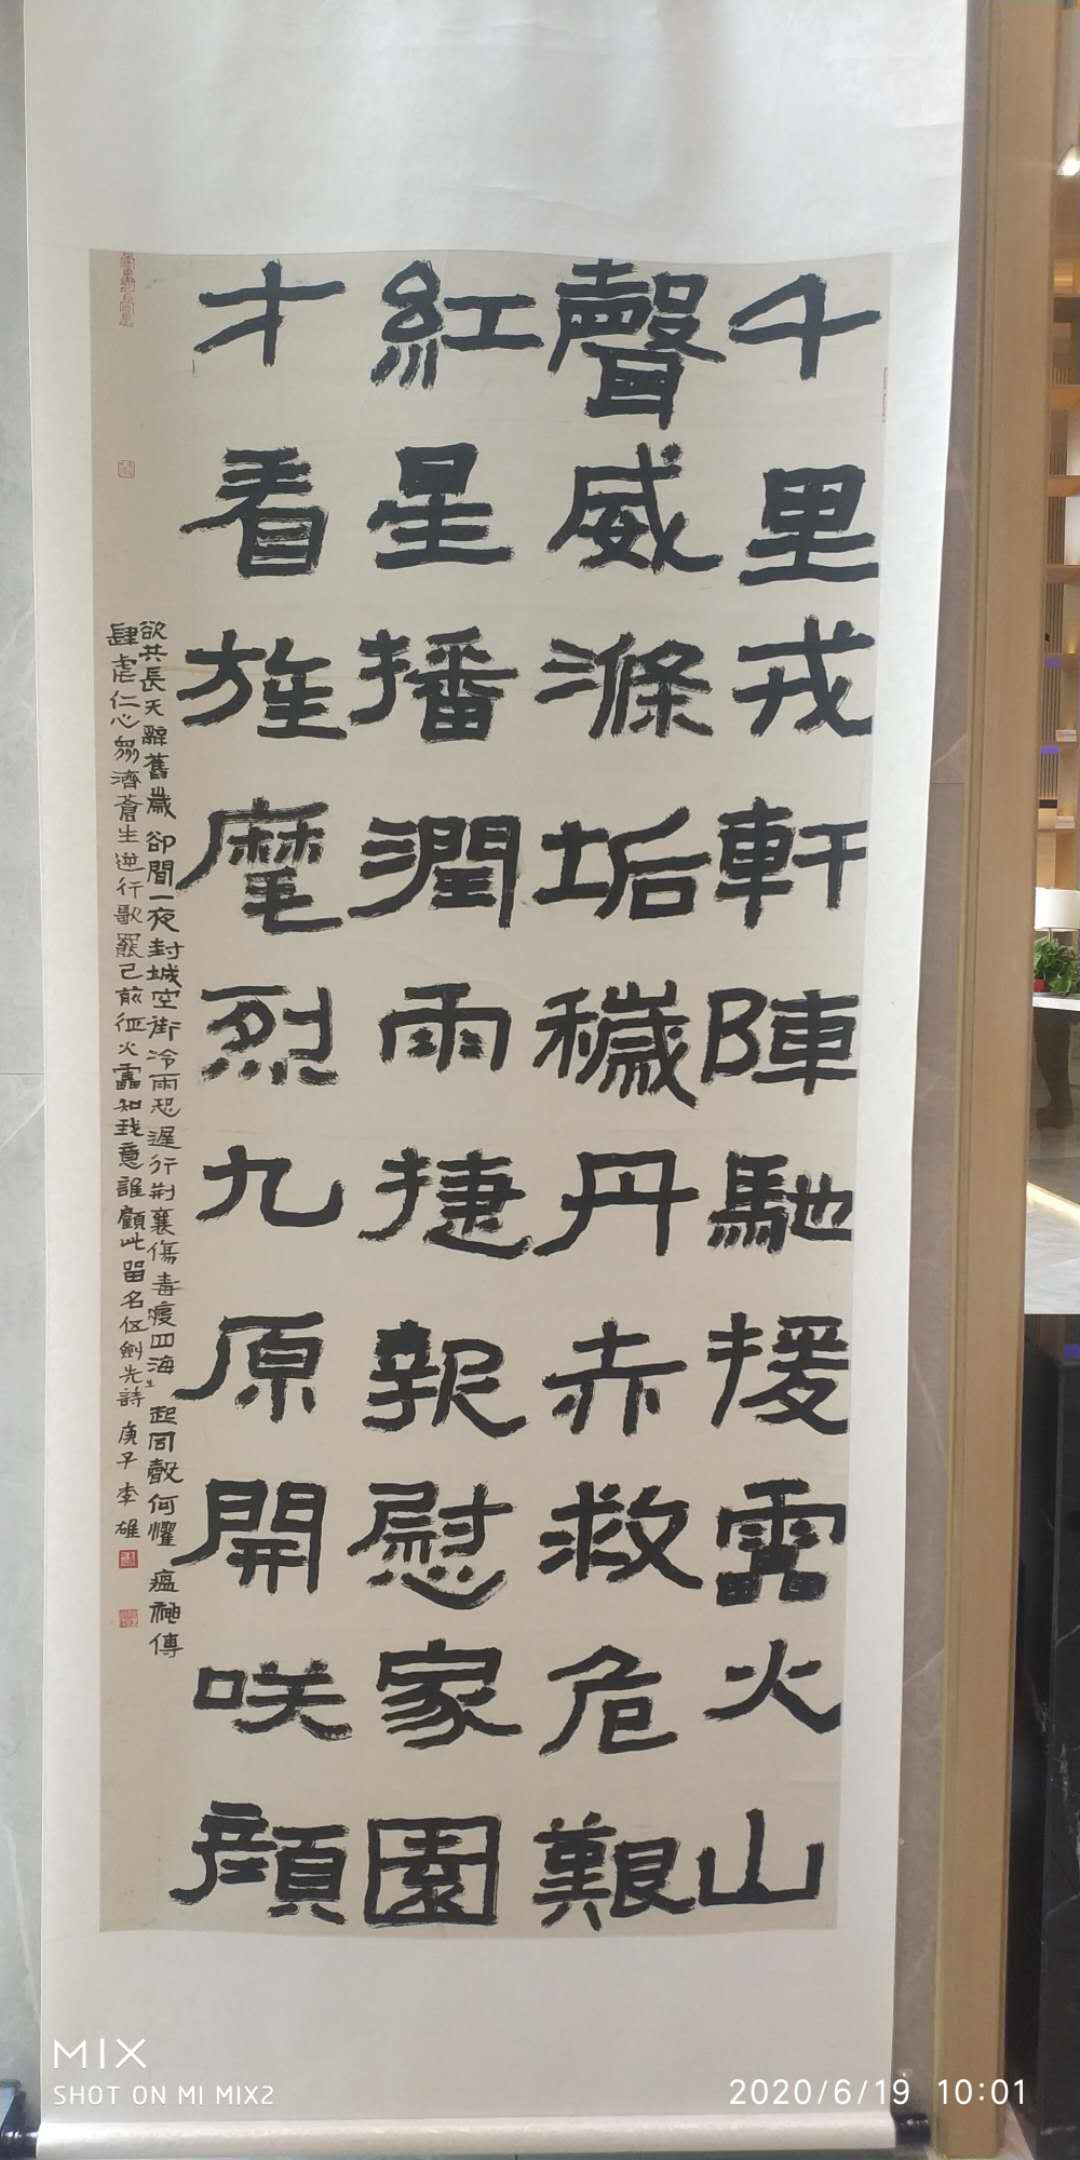 千里戎軒陣馳援靁火山
聲威滌垢穢丹赤救危艱
紅星播潤雨捷報慰家園
才看旌麾烈九原開咲顔
欲共長天辭舊歲卻聞一夜封城空街冷雨恐遲行荆襄傷毒疫四海起同聲何懼瘟神傳
肆虐仁心芻濟蒼生逆行歌罷已前征火靁知我意誰顧此留名伍劍先詩庚子李雄
MIX
SHOT ON MI MIX2
2020/6/19 10:01